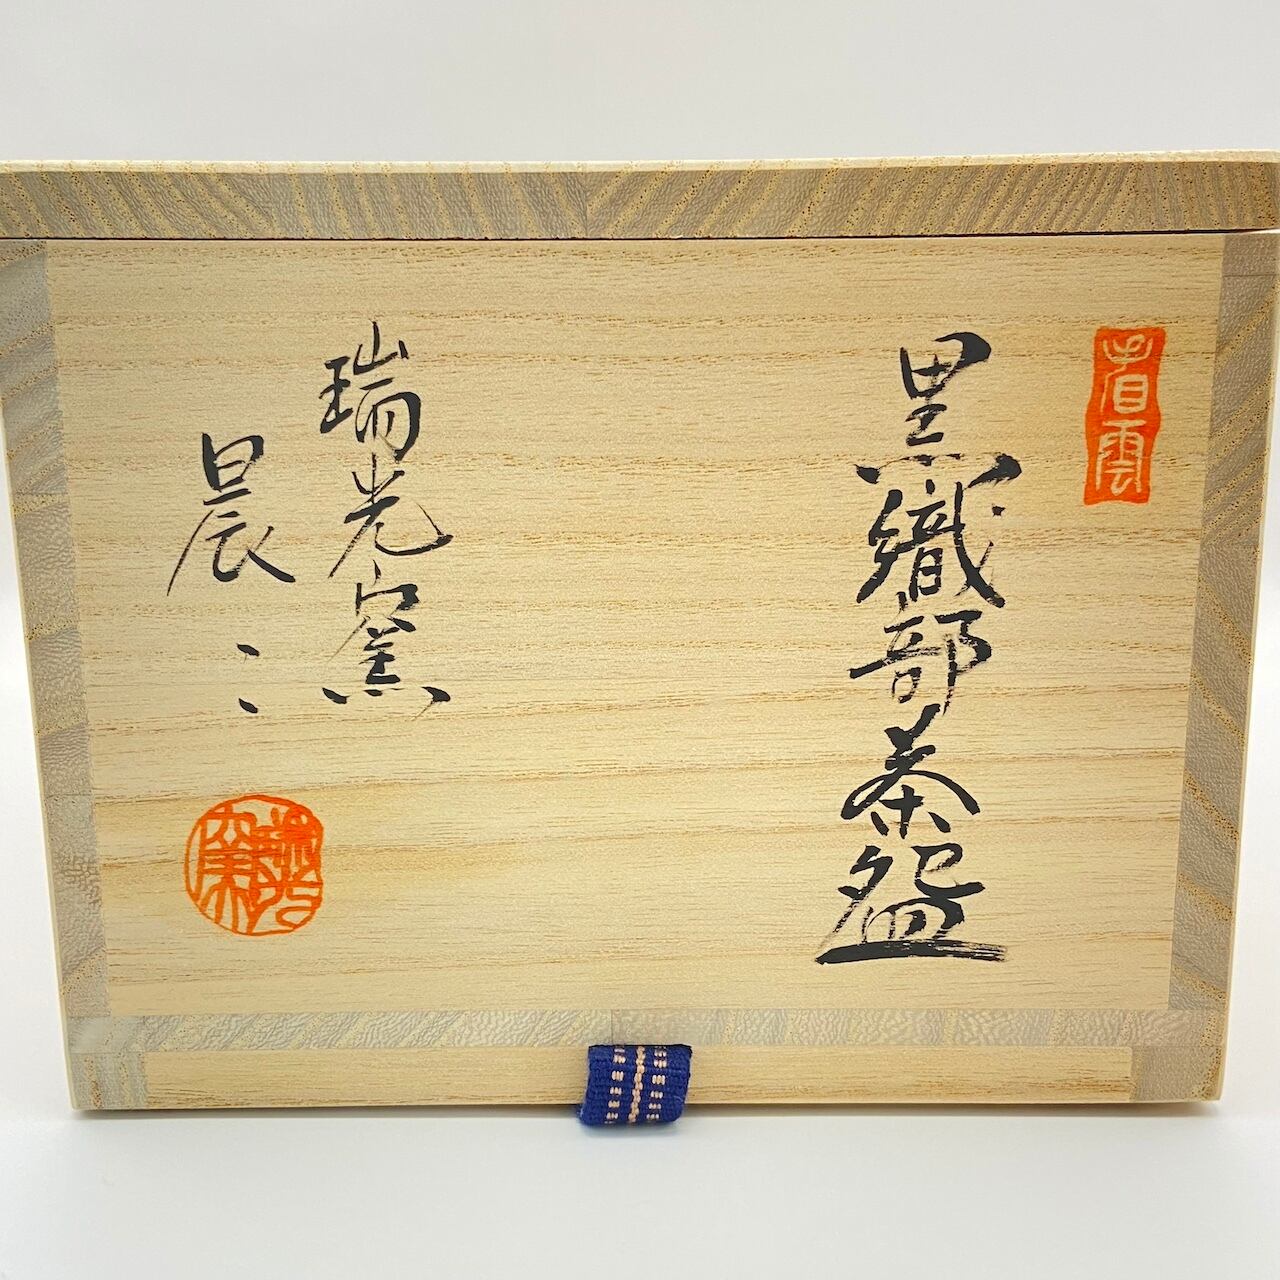 黒織部茶盌
瑞光窯
晨二